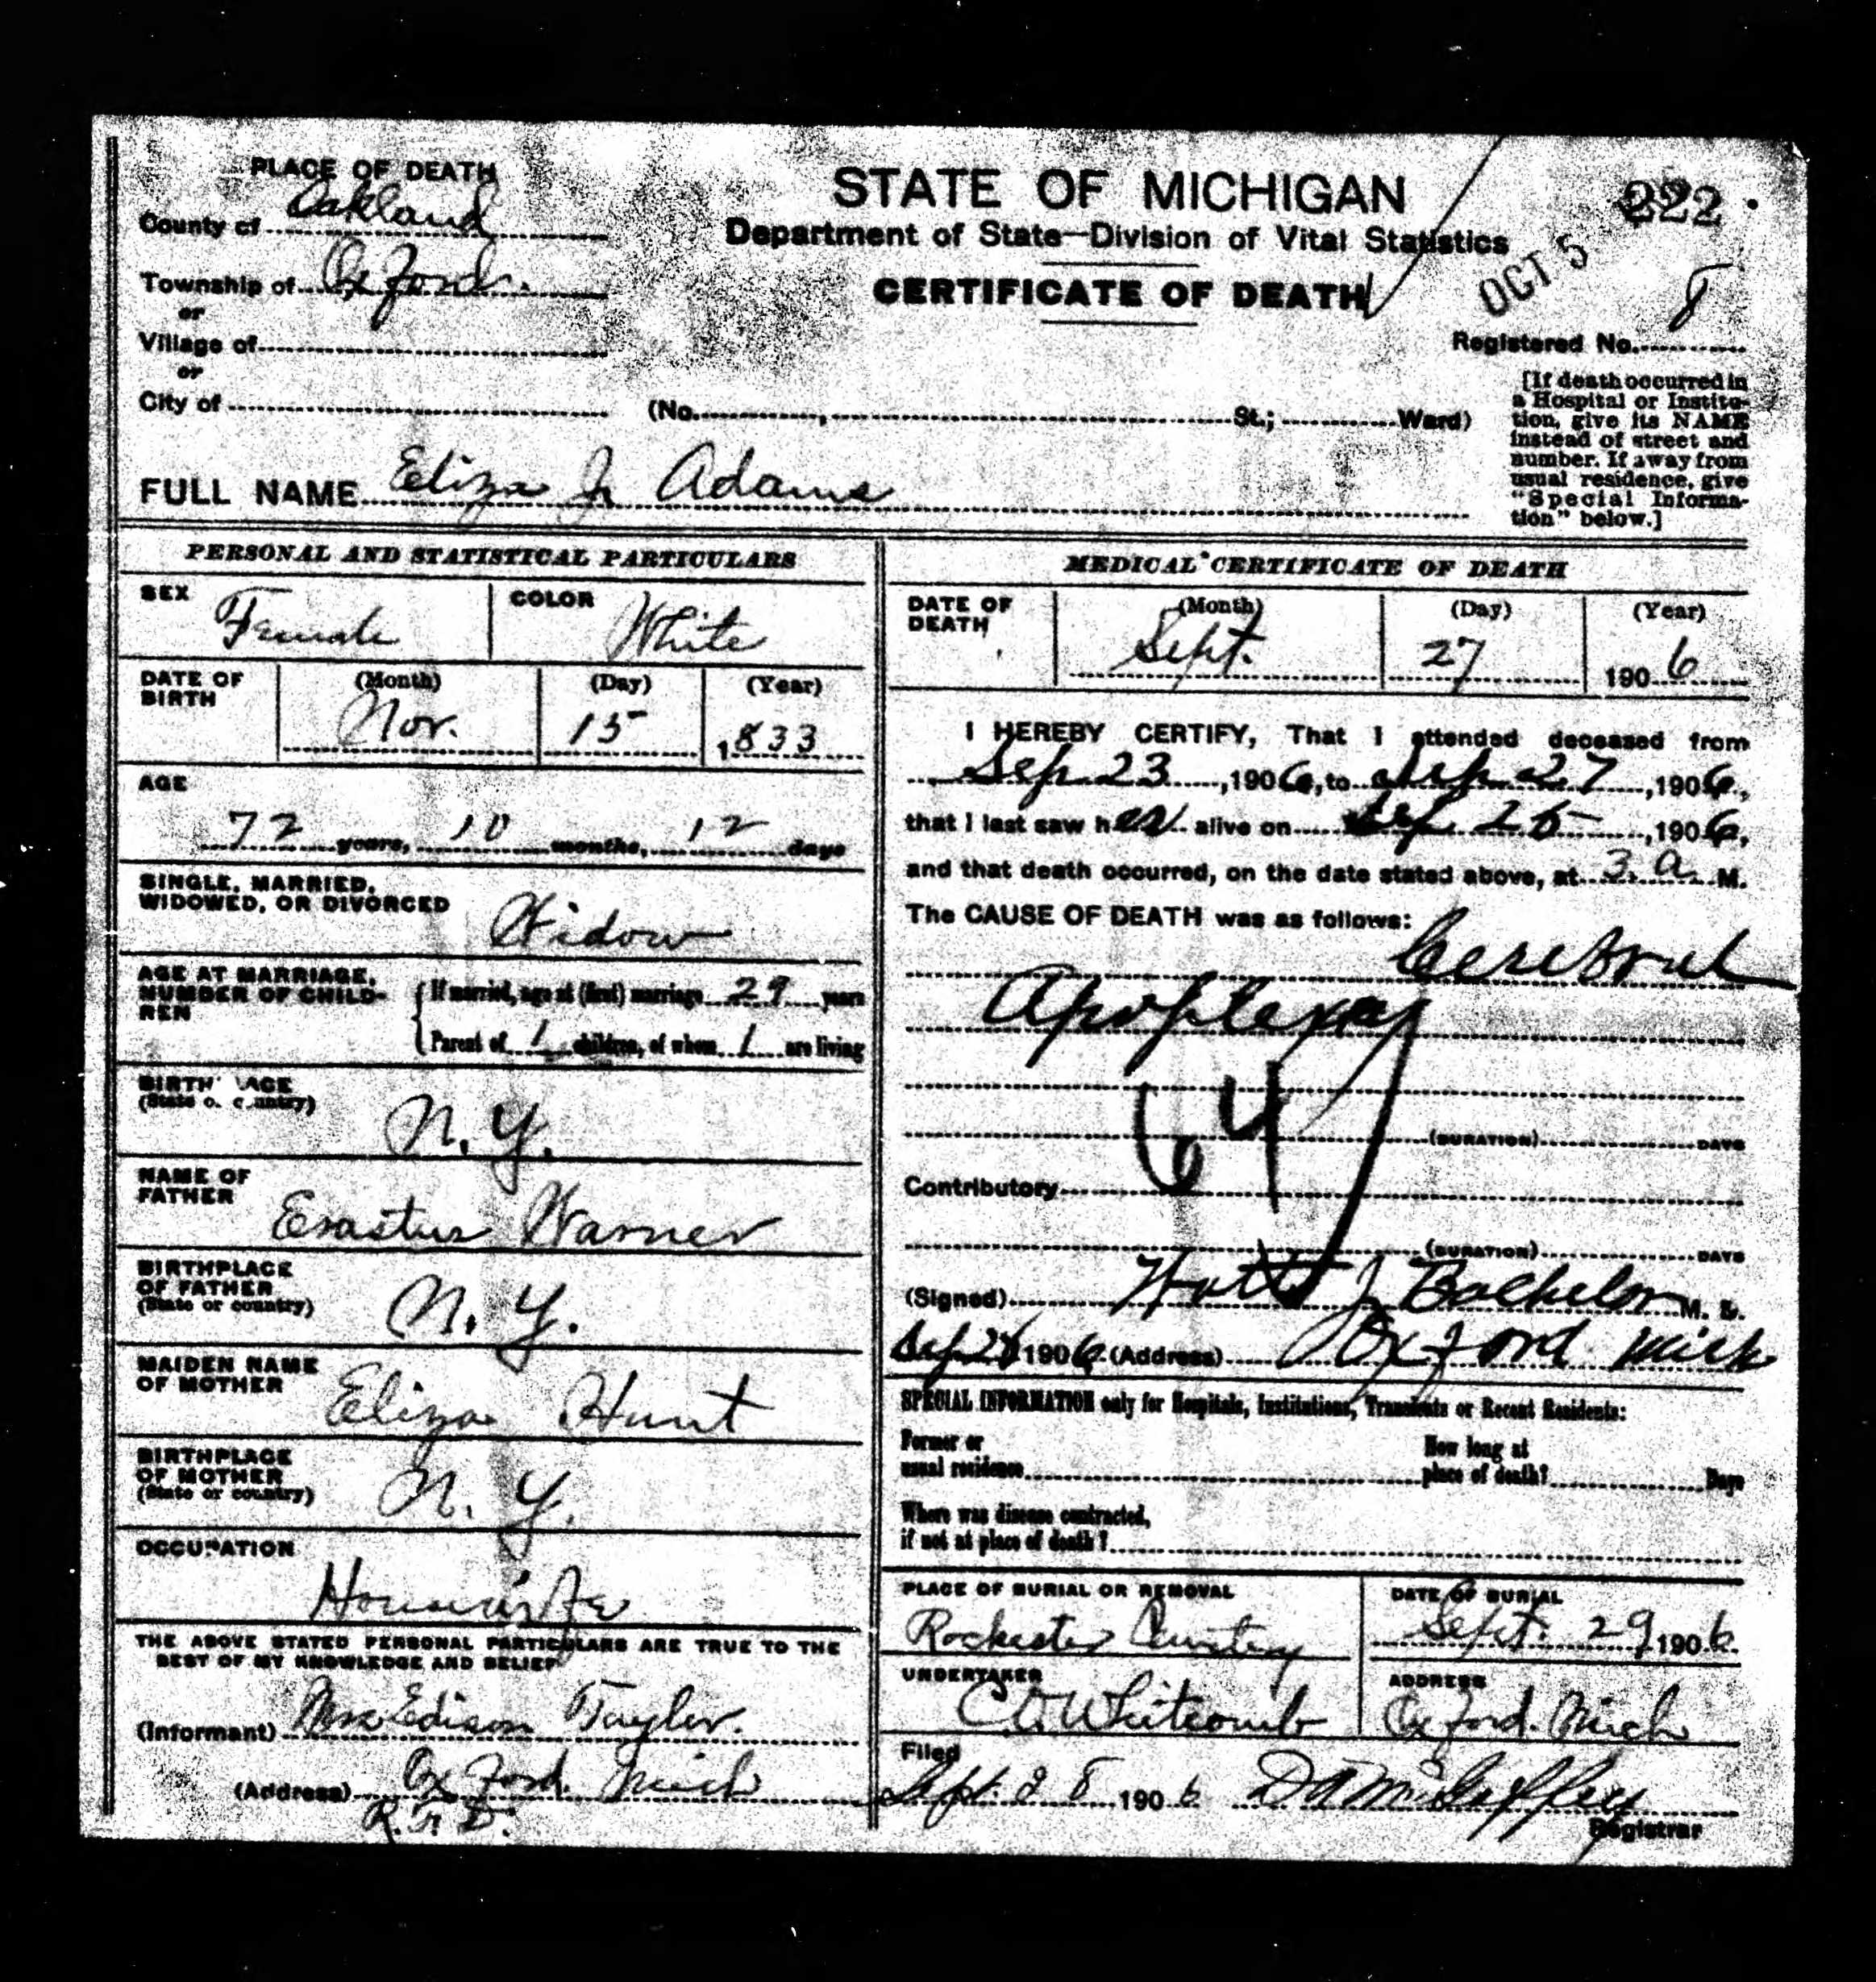 PLACE OF DEATH
County of Oakland
Township of Oxford.
or
Village of
or
City of (No. , St.; Ward)
STATE OF MICHIGAN
Department of State—Division of Vital Statistics
CERTIFICATE OF DEATH
222
OCT 5
8
Registered No.
[If death occurred in
a Hospital or Institu-
tion, give its NAME
instead of street and
number. If away from
usual residence, give
"Special Informa-
tion" below.]
FULL NAME Eliza J. Adams
PERSONAL AND STATISTICAL PARTICULARS
SEX Female COLOR White
DATE OF BIRTH (Month) (Day) (Year)
Nov. 15 1833
AGE
72 years, 10 months, 12 days
SINGLE, MARRIED,
WIDOWED, OR DIVORCED Widow
AGE AT MARRIAGE,
NUMBER OF CHILD-
REN
If married, age at (first) marriage 29 years
Parent of 1 children, of whom 1 are living
BIRTHPLACE
(State or country)
N.Y.
NAME OF
FATHER
Erastus Warner
BIRTHPLACE
OF FATHER
(State or country)
N.Y.
MAIDEN NAME
OF MOTHER
Eliza Hunt
BIRTHPLACE
OF MOTHER
(State or country)
N.Y.
OCCUPATION
Housewife
THE ABOVE STATED PERSONAL PARTICULARS ARE TRUE TO THE
BEST OF MY KNOWLEDGE AND BELIEF
(Informant) Mrs Edison Taylor.
(Address) Oxford. Mich
R.F.D.
MEDICAL CERTIFICATE OF DEATH
DATE OF
DEATH
(Month) (Day) (Year)
Sept. 27 1906
I HEREBY CERTIFY, That I attended deceased from
Sep 23, 1906, to Sep 27, 1906,
that I last saw her alive on Sep, 1906,
and that death occurred, on the date stated above, at 3. a M.
The CAUSE OF DEATH was as follows:
Cerebral
Apoplexy
64
(DURATION) DAYS
Contributory
(DURATION) DAYS
(Signed) J. Bachelor M. D.
Sep 1906 (Address) Oxford Mich
SPECIAL INFORMATION only for Hospitals, Institutions, Transients or Recent Residents:
Former or
usual residence
How long at
place of death? Days
Where was disease contracted,
if not at place of death?
PLACE OF BURIAL OR REMOVAL
Rochester Cemetery
DATE OF BURIAL
Sept. 29 1906
UNDERTAKER
C.O. Whitcomb
ADDRESS
Oxford. Mich
Filed
Sept. 28 1906
Registrar